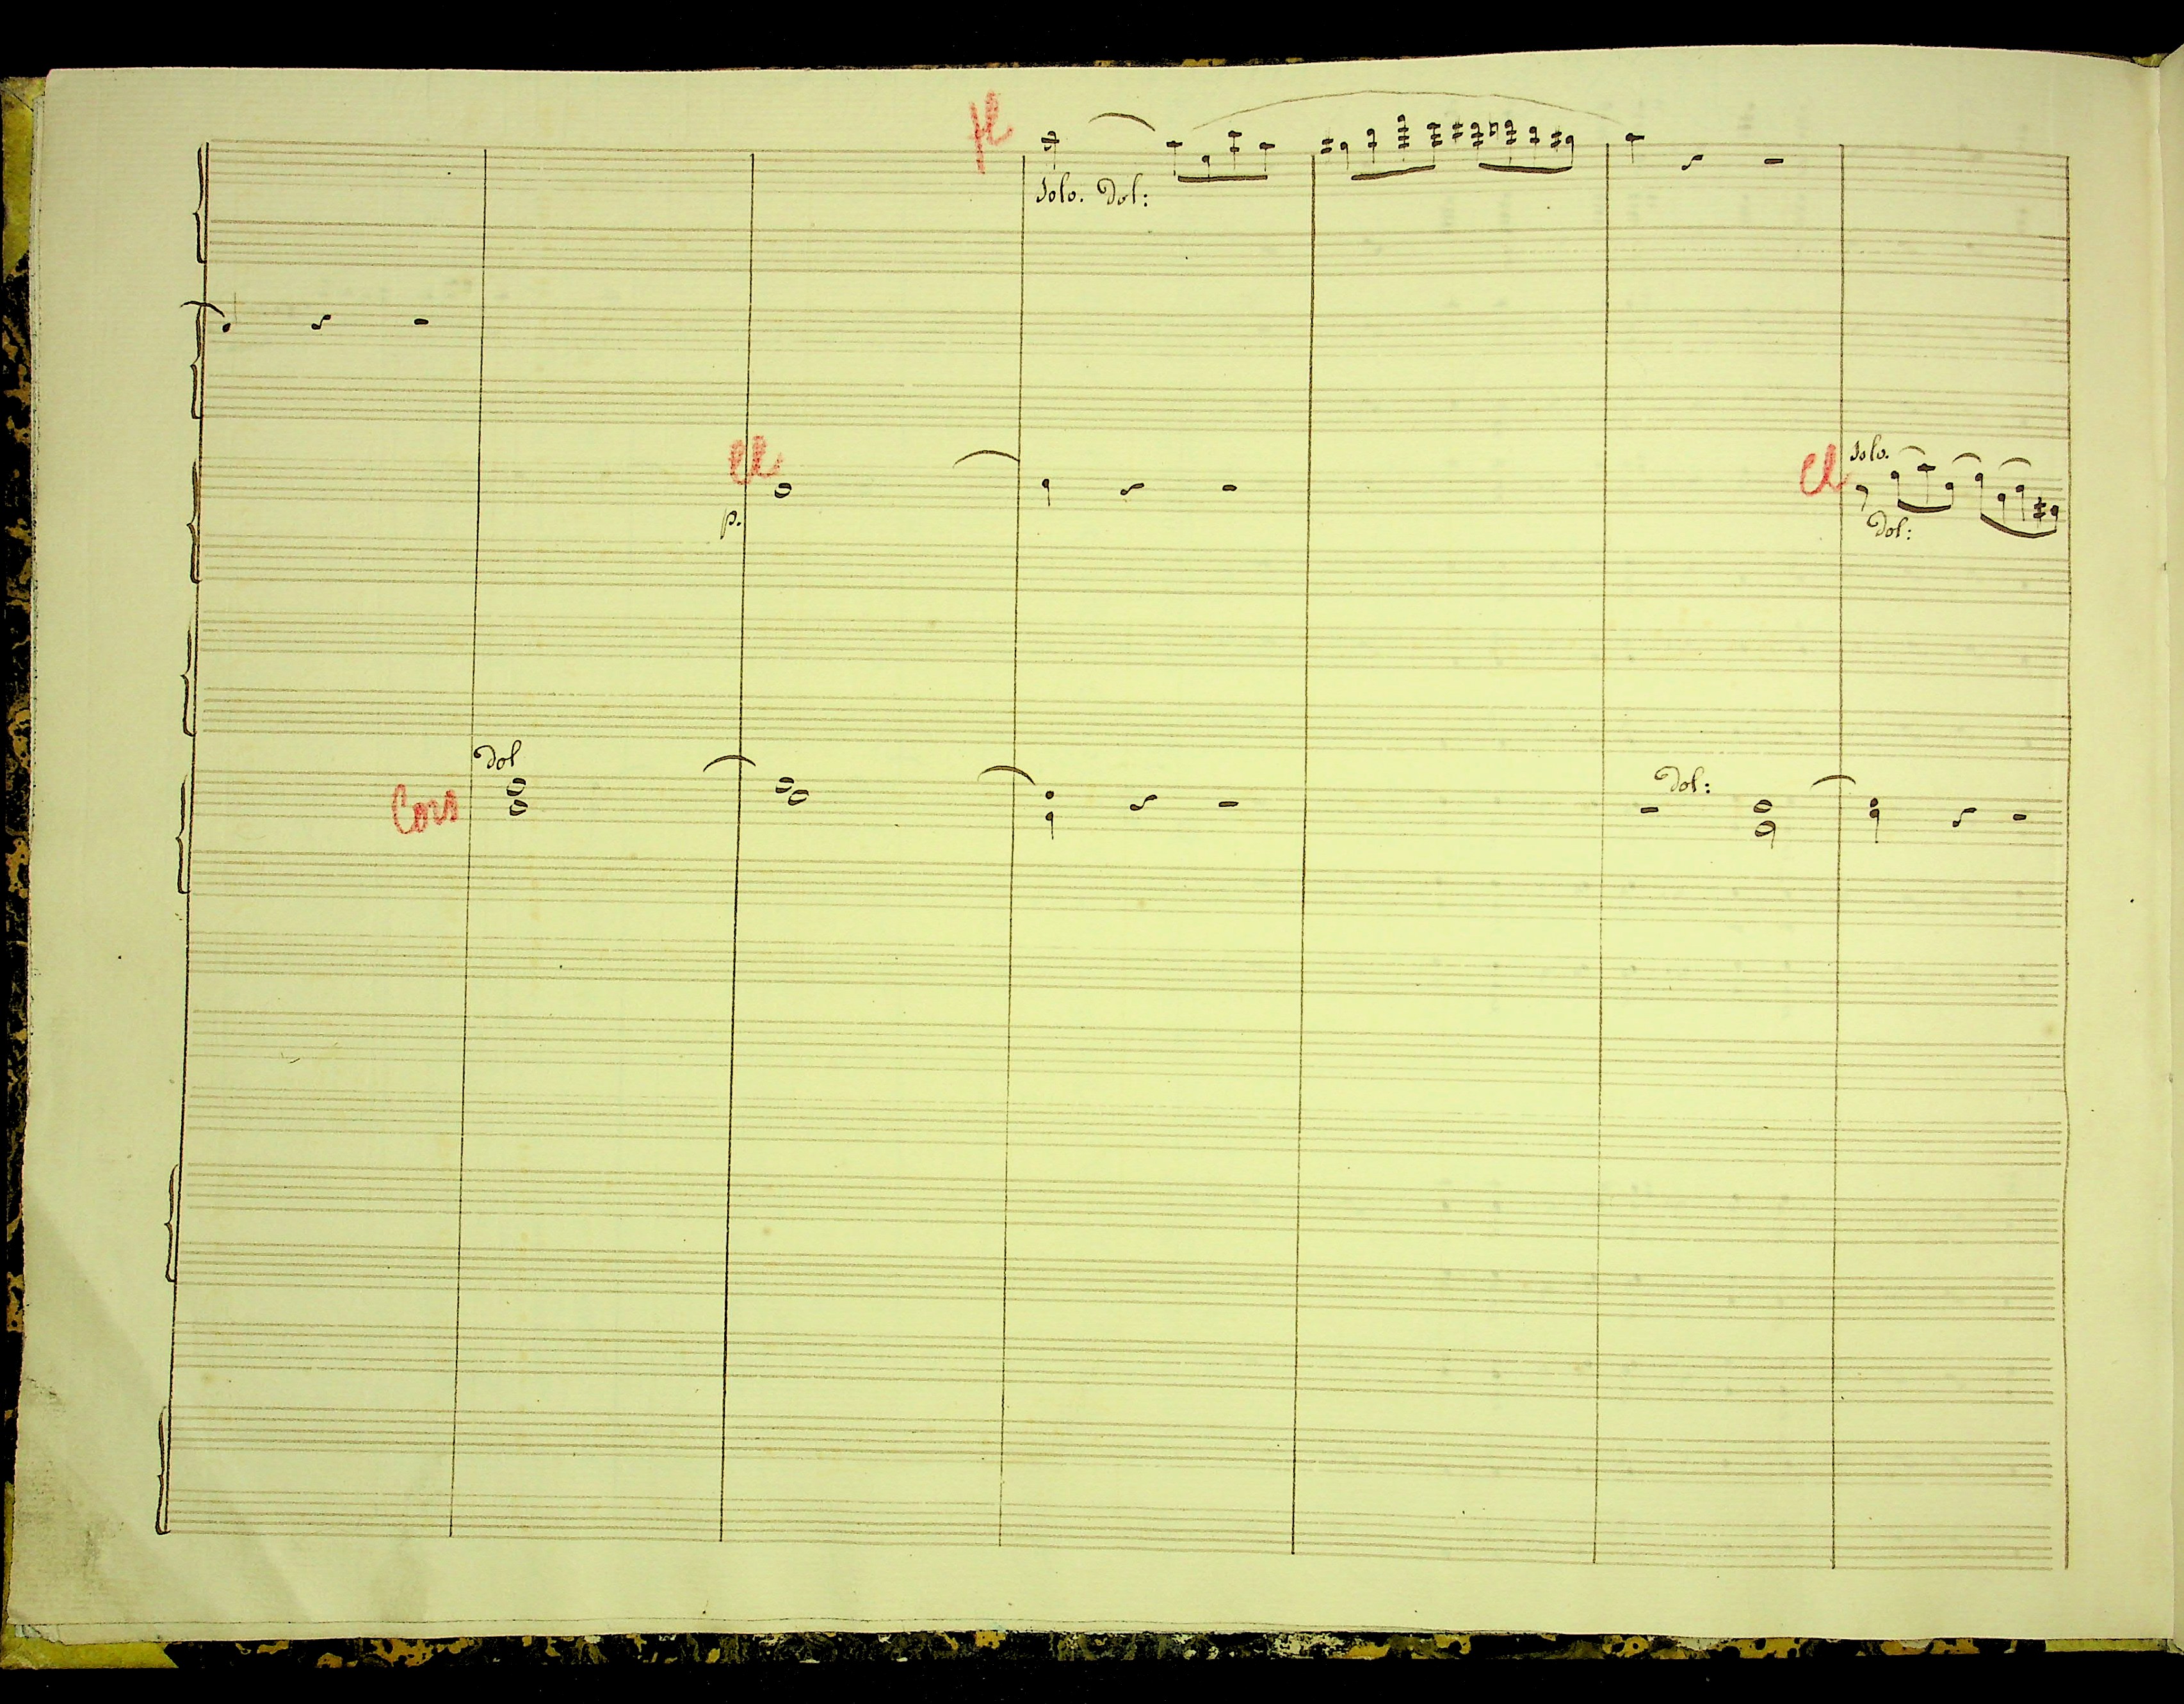 fl
Solo. Dol:
Cl
p.
Cl
Solo.
Dol:
Dol
Cors
Dol: